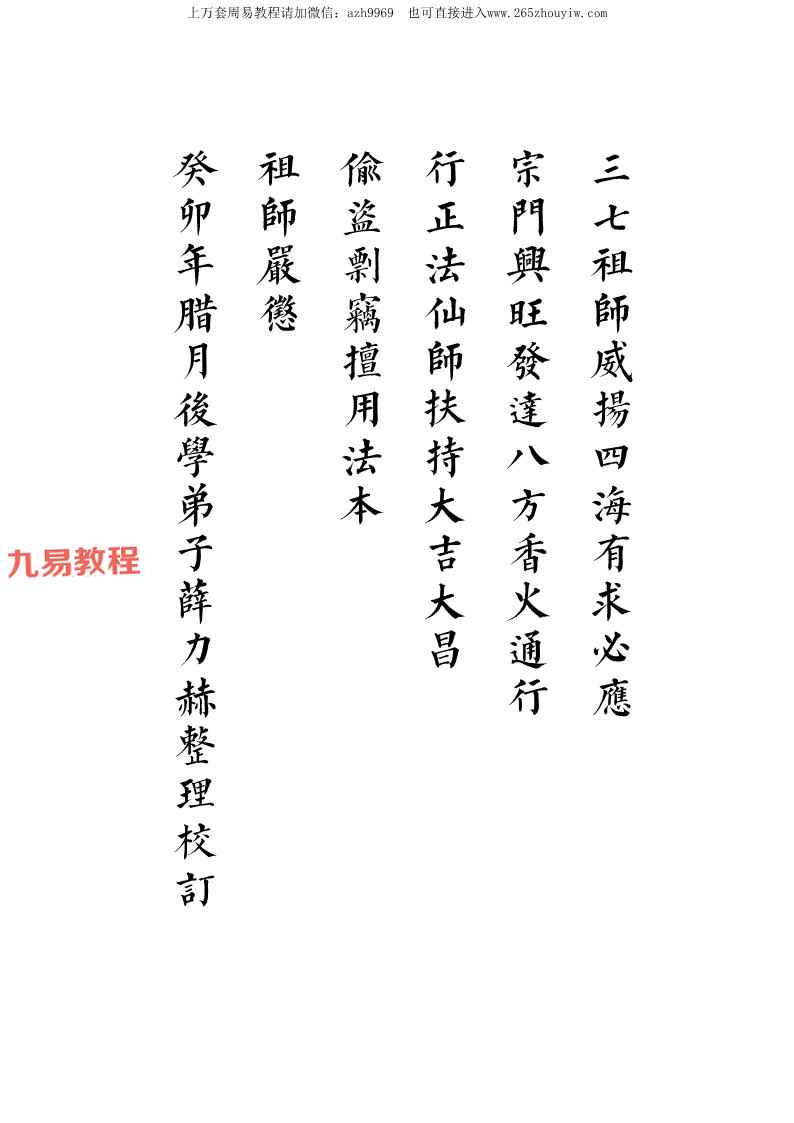 上万套周易教程请加微信：azh9969 也可直接进入www.265zhouyiw.com
三七祖師威揚四海有求必應
宗門興旺發達八方香火通行
行正法仙師扶持大吉大昌
偸盜剽竊擅用法本
祖師嚴懲
癸卯年腊月後學弟子薛力赫整理校訂
九易教程